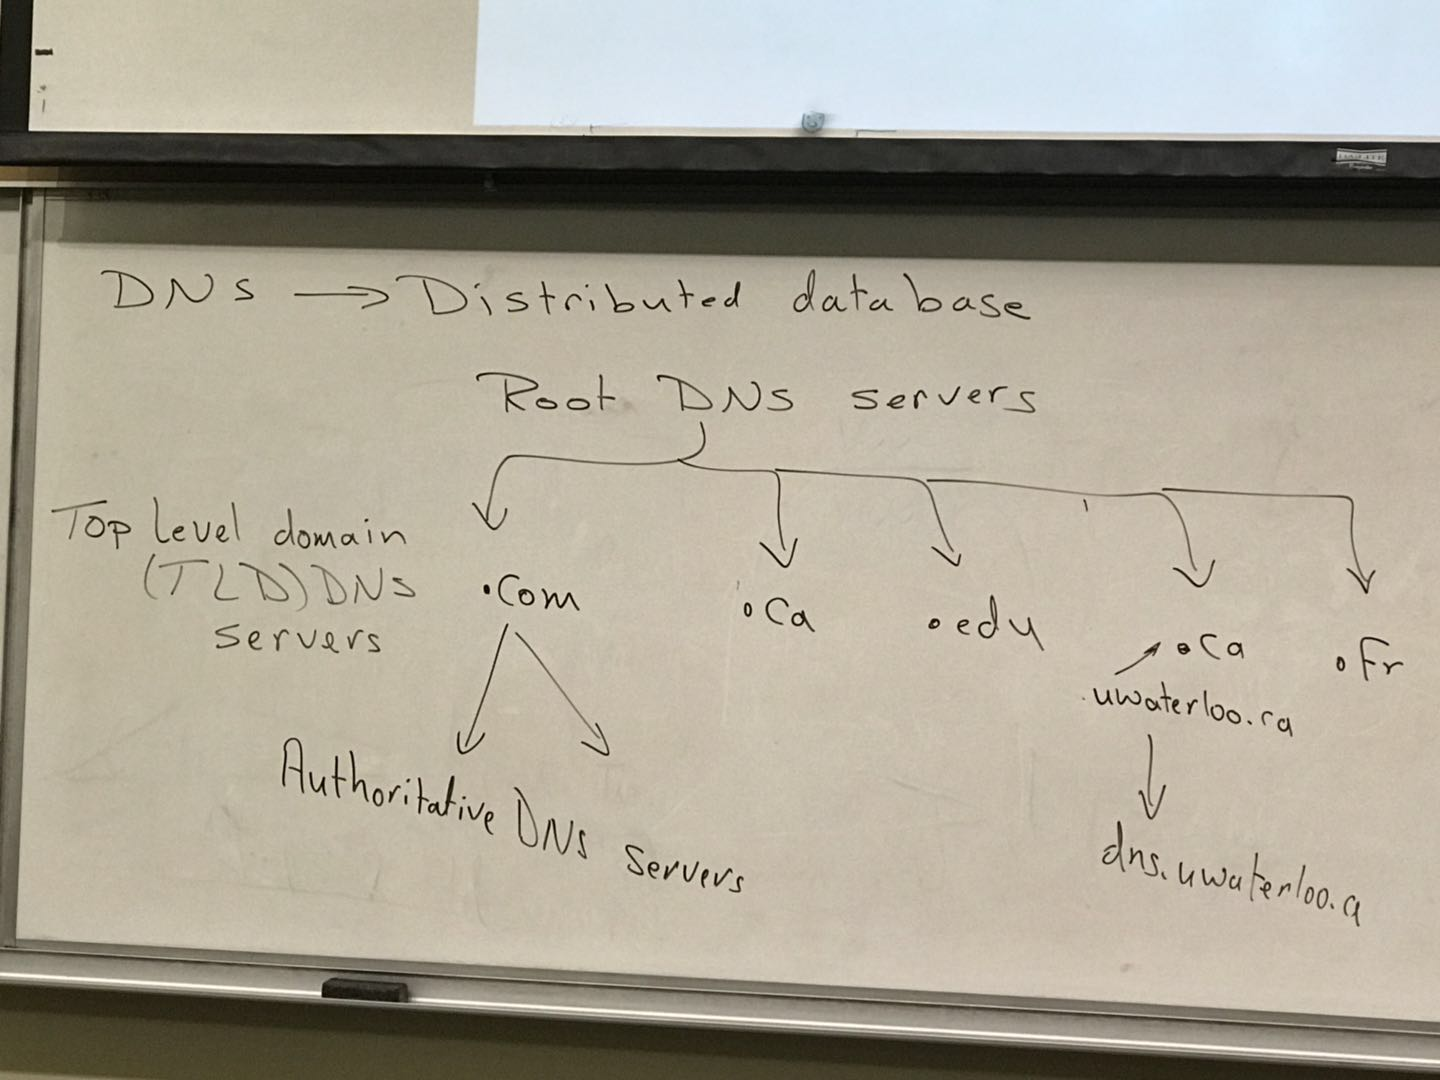 DNS → Distributed database
Root DNS servers
Top Level domain
(TLD) DNS
servers
.Com
.Ca
.edu
.Ca
.Fr
uwaterloo.ca
Authoritative DNS servers
dns.uwaterloo.ca